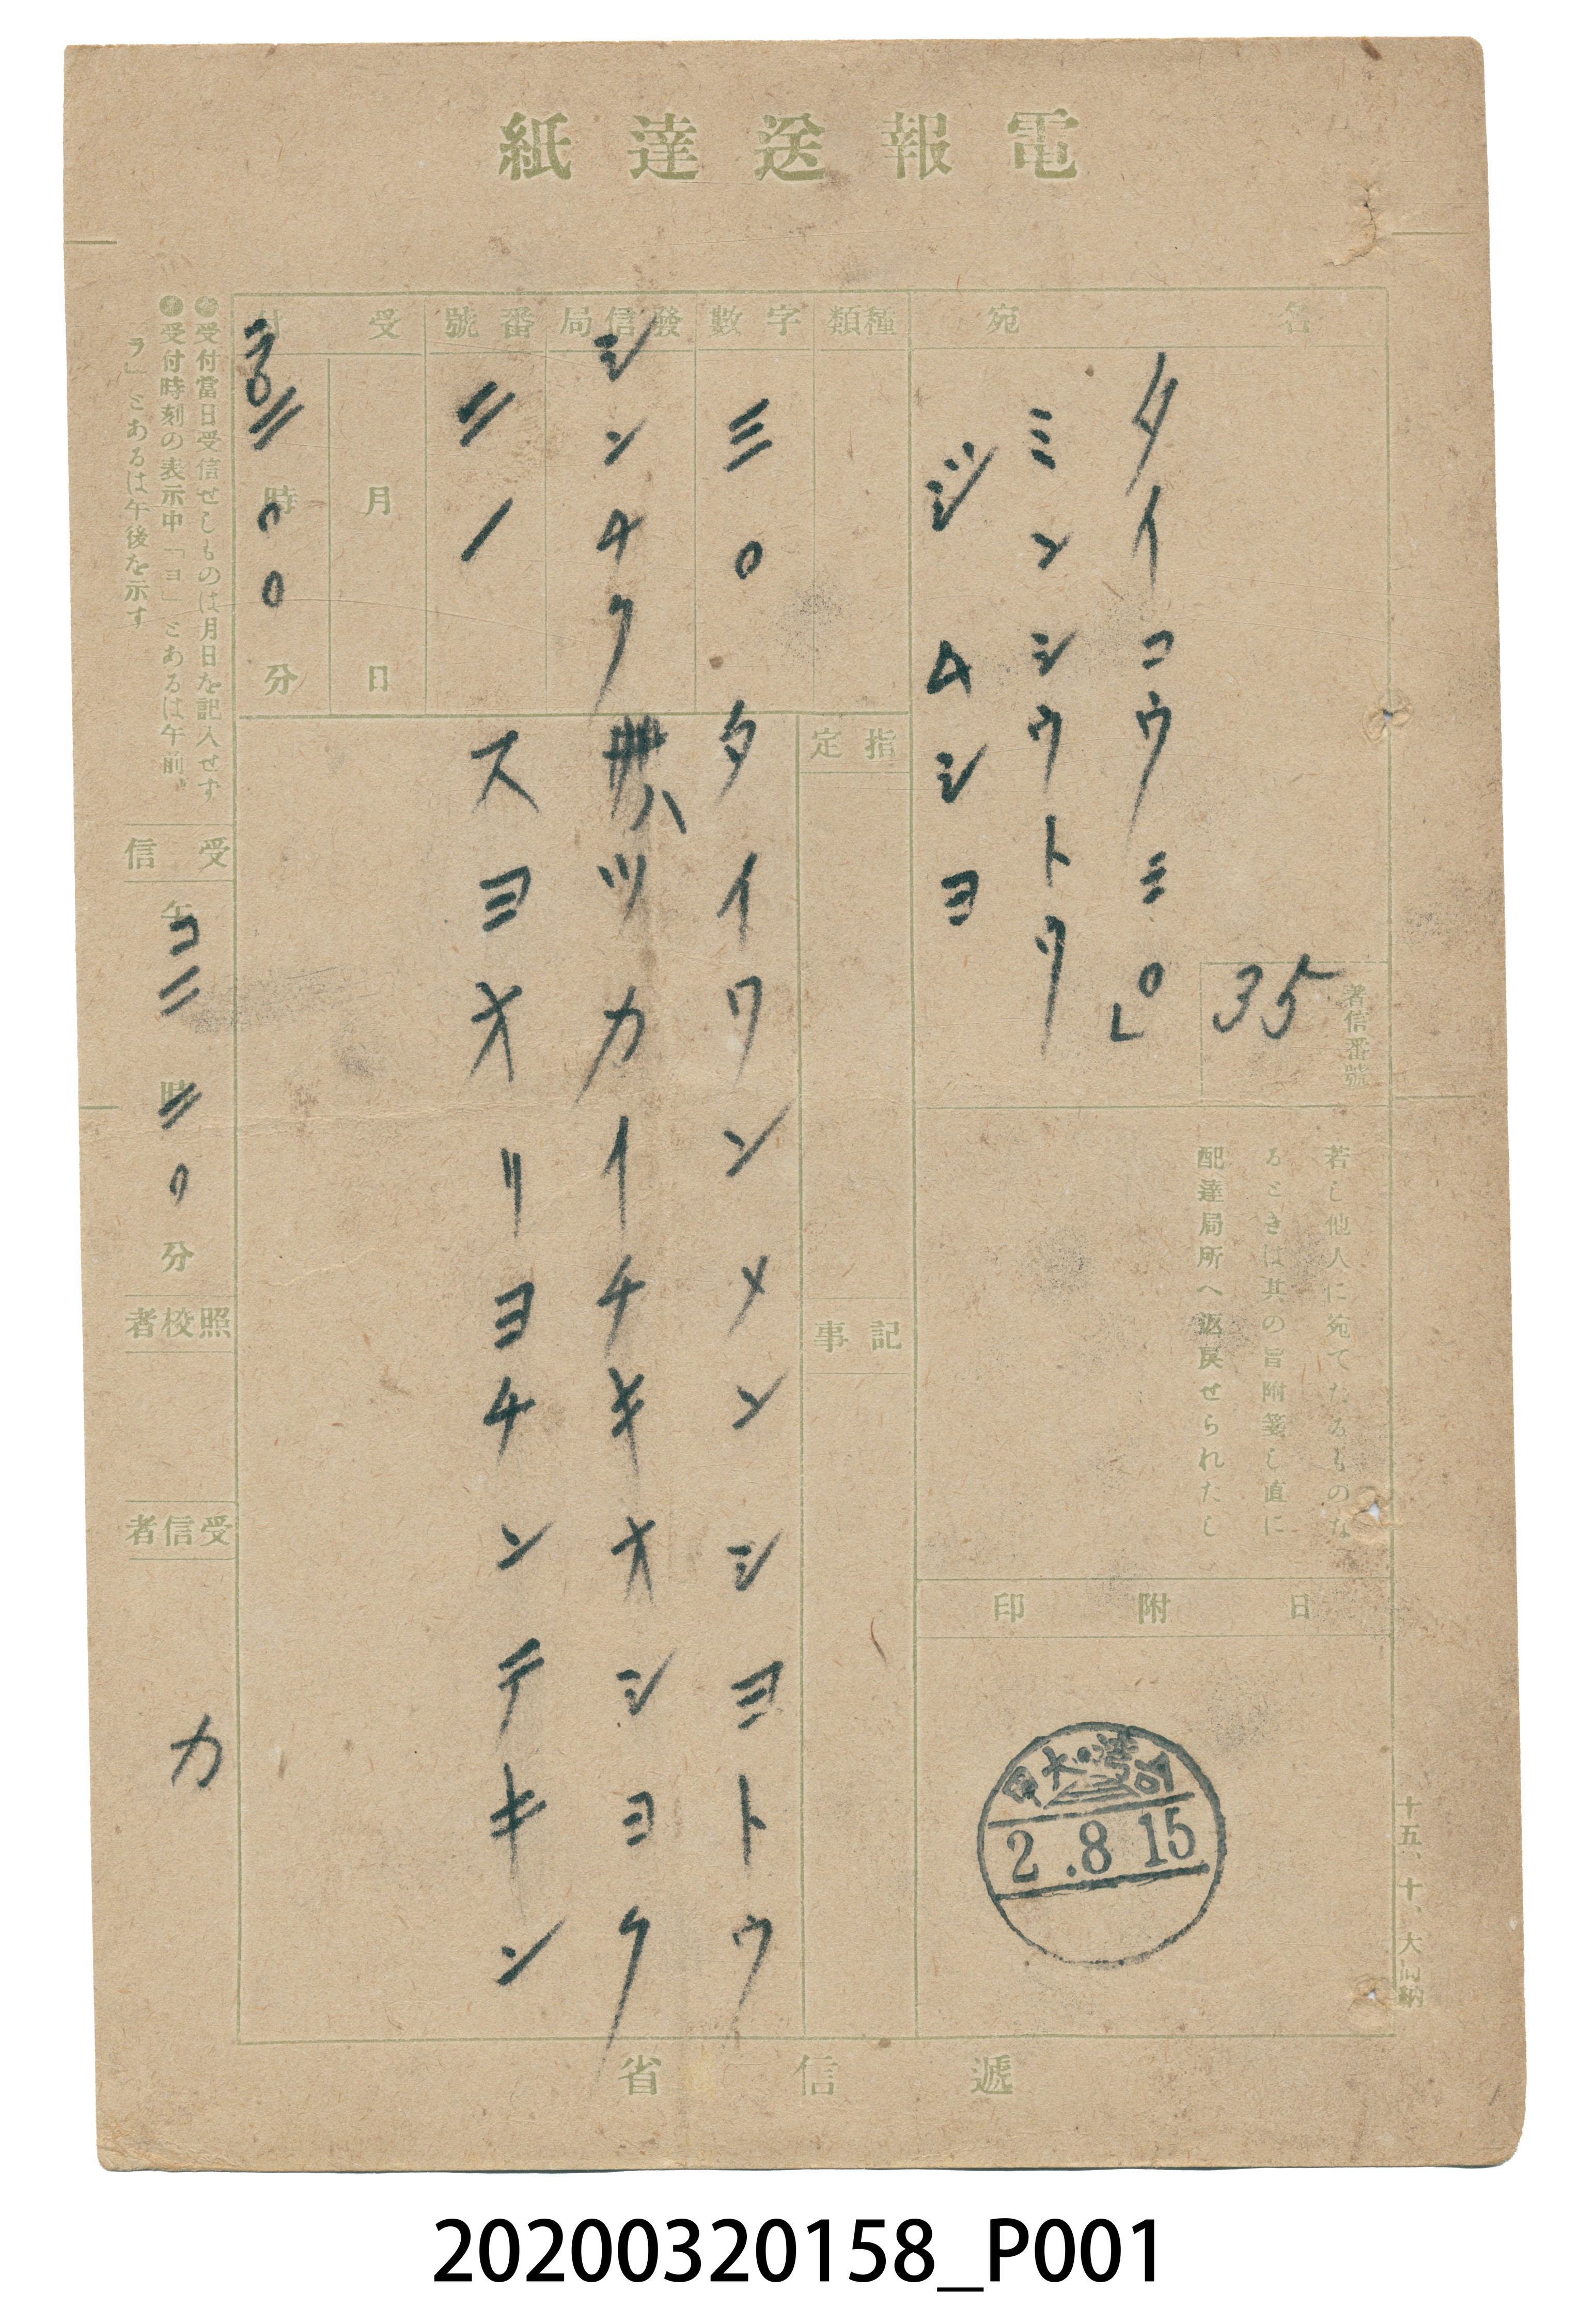 電報送達紙
宛名
タイコウミ〇」
ミンシウトウ
ジムシヨ
著信番號
35
若し他人に宛てたるものな
るときは其の旨附箋し直に
配達局所へ返戻せられたし
日附印
台灣・大甲
2.8.15
種類
字數
三〇
發信局
シンチク
番號
二ノ
受付
月日
時
分
指定
記事
タイワンメンシヨトウ
ハツカイチキオシヨク
スヨオリヨチンテキン
㊟受付當日受信せしものは月日を記入せず
㊟受付時刻の表示中「ヨ」とあるは午前、
「ラ」とあるは午後を示す
受信
午
コ二
時
二〇
分
照校者
受信者
カ
遞信省
十五、十、大
20200320158_P001